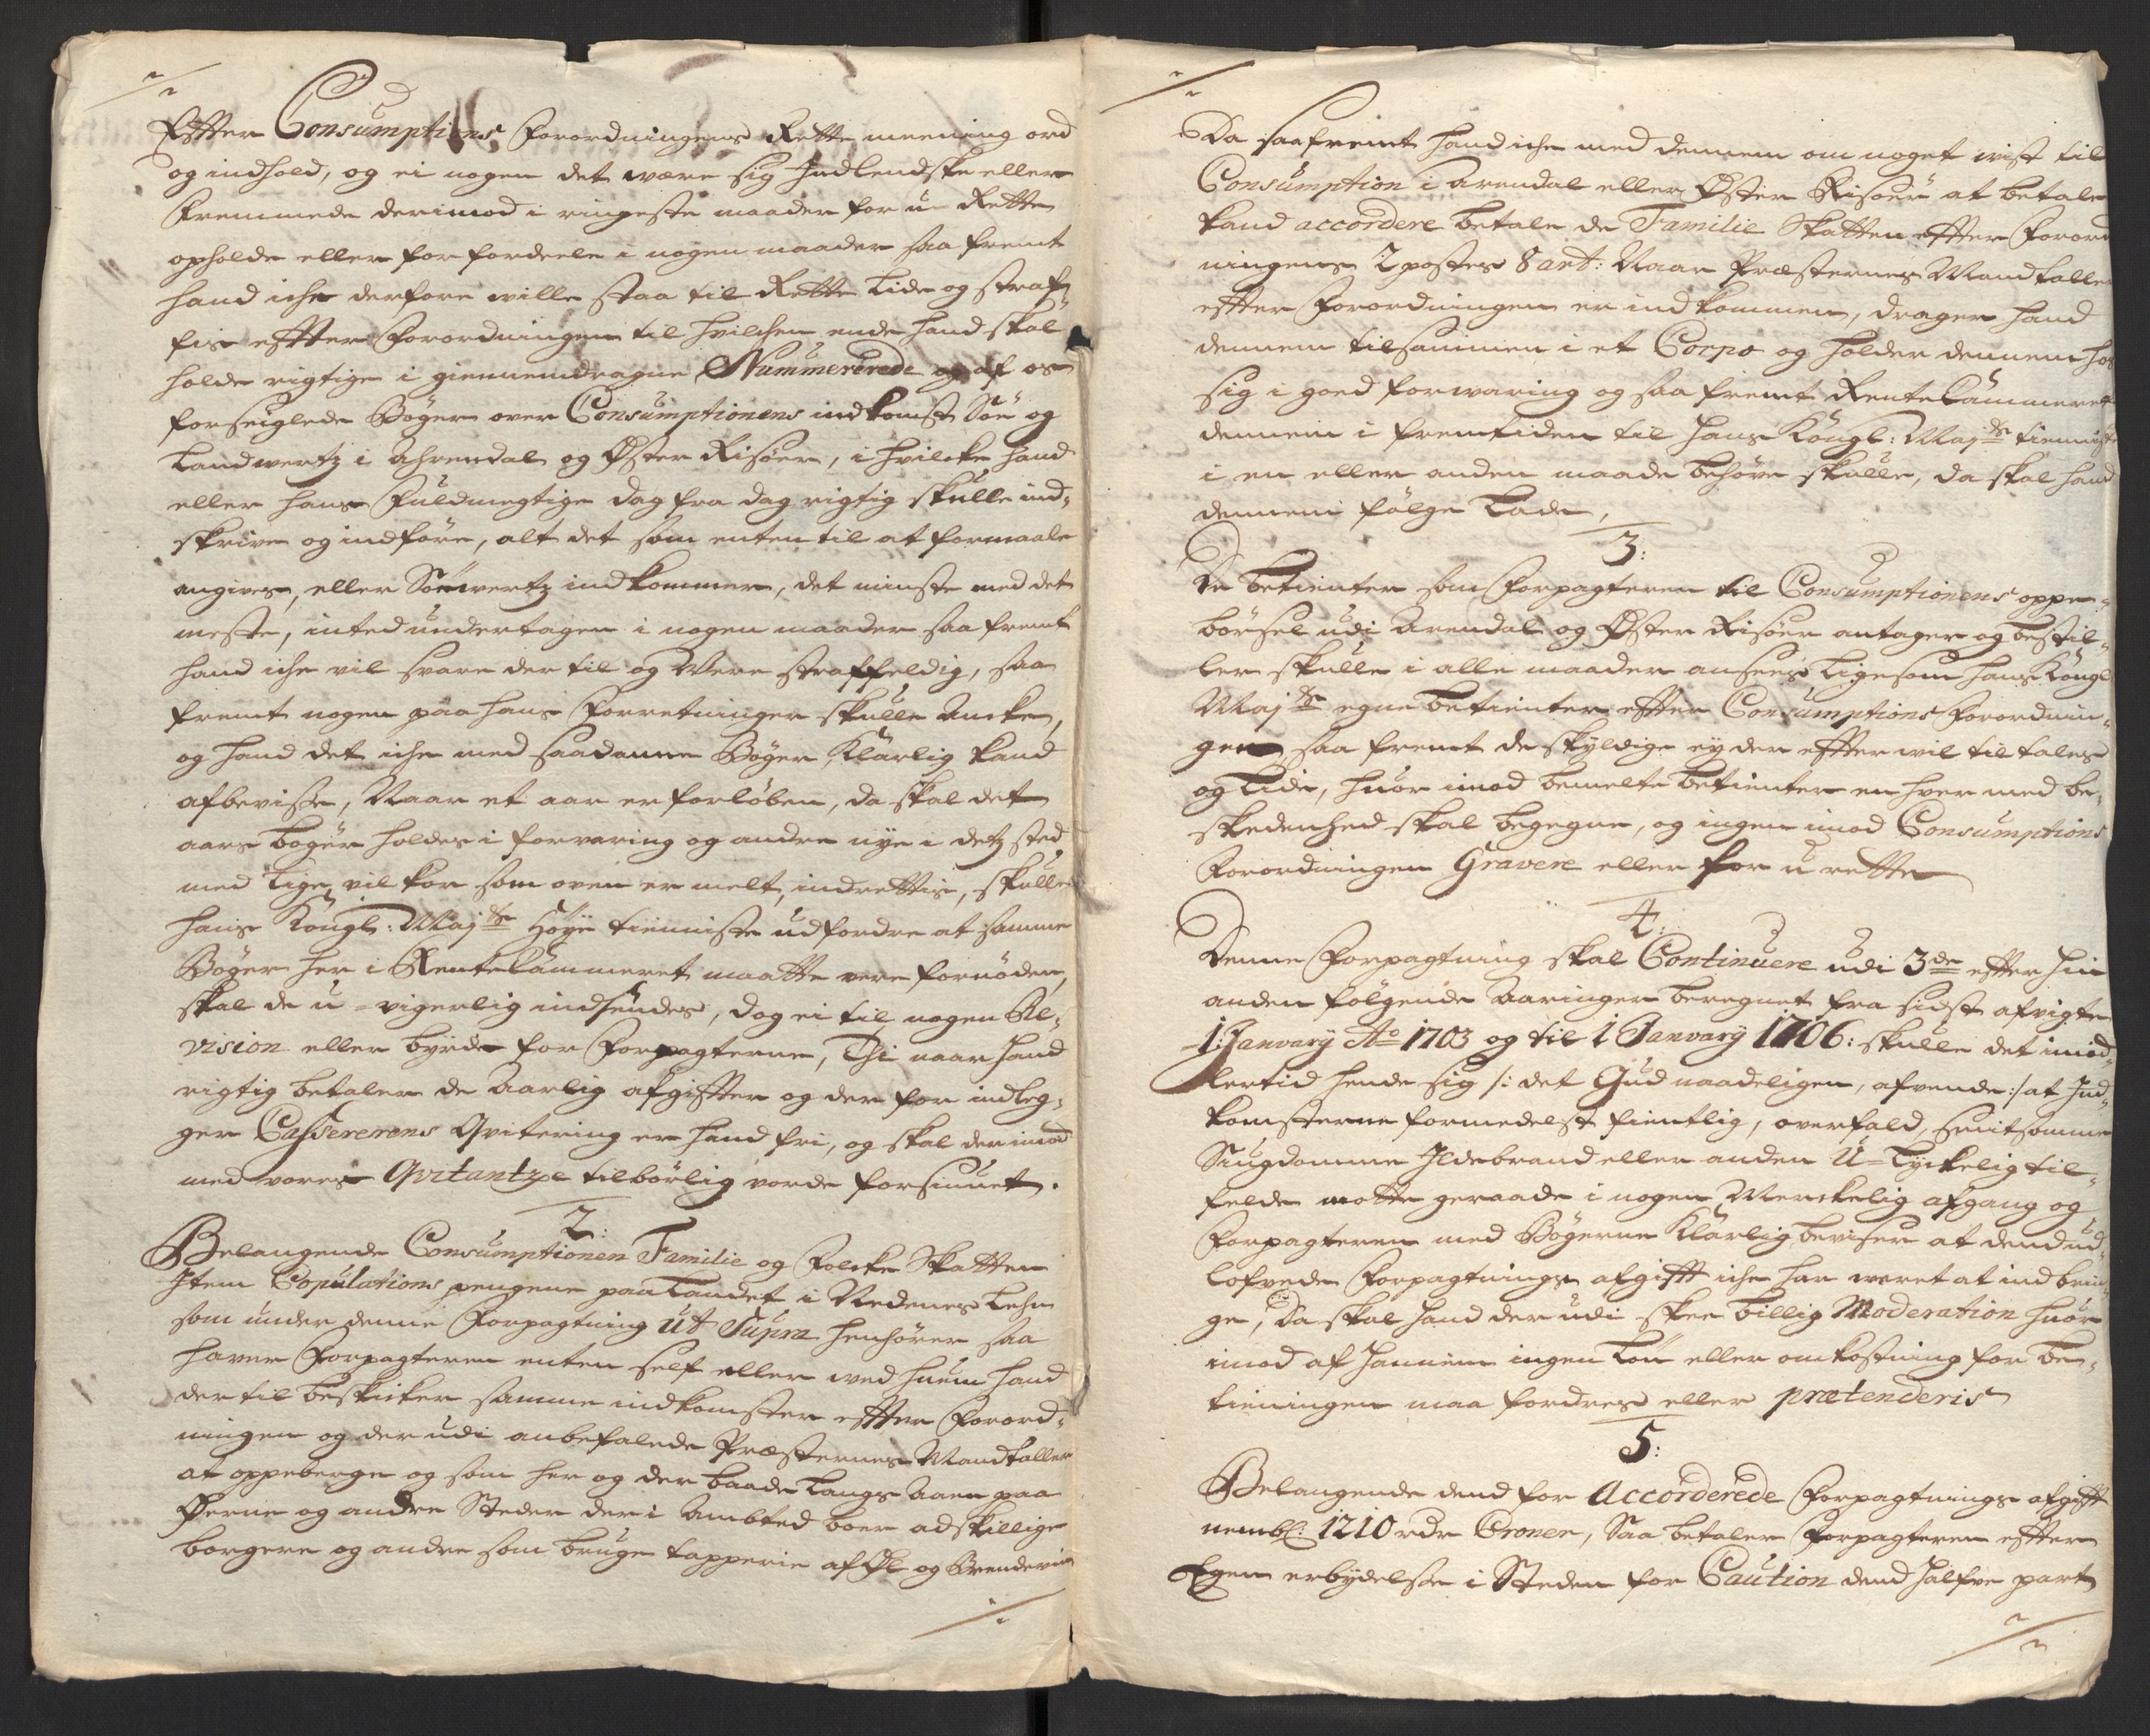 Efter Consumptions Forordningens Rette meening ord
og indhold, og ei nogen det være sig Indlendske eller
Fremmede derimod i ringeste maader for u Rette
opholde eller forfordeele i nogen maader saa fremt
hand iche derfore wille staa til Rette lide og straf-
fis effter Forordningen til hvilchen ende hand skal
holde rigtige i giennemdragne Nummererede og af os
forseiglede Bøger over Consumptionens indkomst Söe og
Landwertz i Ahrendal og Øster Risöer, i hvilcke hand
eller hans Fuldmegtige dag fra dag rigtig skulle ind-
skrive og indföre, alt det som enten til at formaale
angives, eller Söewertz indkommer, det minste med det
meste, inted undertagen i nogen maader saa fremt
hand iche vil svare der til og Vere straffeldig, saa
fremt nogen paa hans Forretninger skulle Ancke,
og hand det iche med saadanne Bøger Klarlig kand
afbevisse, Naar et aar er forløben, da skal det
aars bøger holdes i forvaring og andre nye i detz sted
med lige vilkor som oven er melt indrettis, skulle
hans Kongl: Maj.ts Höye tienniste udfordre at samme
Bøger her i Rentekammeret maatte vere fornöden,
skal de u-vigerlig indsendes, dog ei til nogen Re-
vision eller byrde for Forpagterne, Thi naar hand
rigtig betaler de Aarlig afgiffter og der for indleg-
ger Cassererens Qvitering er hand fri, og skal der imod
med vores Qvitantze tilbörlig vorde forsiunet.
2:
Belangende Consumptionen Familie og Folcke Skatten
Item Copulations pengene paa Landet i Nedenes Lehn
som under denne Forpagtning Ut Supra henhörer saa
haver Forpagteren enten self eller ved huem hand
der til beskicker samme indkomster effter Forord-
ningen og der udi anbefalede Præsternes Mandtaller
at oppeberge og som her og der baade langs Aaen paa
Öerne og andre Steder der i Ambted boer adskillige
borgere og andre som bruge tapperie af Øl og Brendeviin
Da saafremt hand iche med dennem om noget wist til
Consumption i Arendal eller Øster Risöer at betale
kand accordere betale de Familie Skatten effter Forord
ningens 2 postes 8 art: Naar Præsternes Mandtaller
effter Forordningen er indkommen, drager hand
dennem tilsammen i et Corpo og holder dennem hos
sig i goed forwaring og saa fremt Rentekammeret
dennem i fremtiden til hans Kongl: Maj.ts tienniste
i en eller anden maade behöve skulle, da skal hand
dennem fölge Lade,
3:
De betienter som Forpagteren til Consumptionens oppe-
börsel udi Arendal og Øster Risöer antager og bestil-
ler skulle i alle maader ansees ligesom hans Kongl
Maj.ts egne betienter effter Consumptions Forordnin-
gen saa fremt de skyldige ey der effter wil tiltales
og lide, huor imod bemelte betienter en hver med be-
skedenhed skal begegne, og ingen imod Consumptions
Forordningen Gravere eller for u rette
4:
Denne Forpagtning skal Continuere udi 3de effter hin
anden fölgende Aaringer beregnet fra sidst afvigte
1: Janvarÿ Ao 1703 og til 1 Janvarÿ 1706: skulle det imid-
lertid hende sig /: det Gud naadeligen, afvende :/ at Ind-
komsterne formedelst fientlig, overfald, smitsomme
Siugdomme Ildebrand eller anden U-lyckelig til-
felde motte geraade i nogen Merckelig afgang og
Forpagteren med Bøgerne Klarlig beviser at dend ud-
lofvede Forpagtnings afgifft iche har veret at indbrin-
ge, Da skal hand der udi skee billig Moderation huor
imod af hannem ingen Lön eller omkostning for be-
tieningen maa fordres eller prætenderis
5:
Belangende dend for Accorderede Forpagtnings afgifft
nembl: 1210 rdr Croner, Saa betaler Forpagteren effter
Egen erbydelse i Steden for Caution dend halfve part